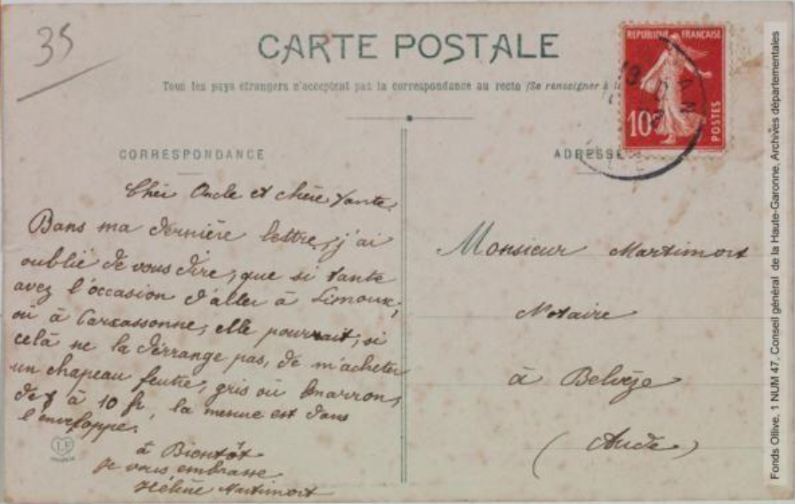 35
CARTE POSTALE
Tous les pays étrangers n'acceptent pas la correspondance au recto (Se renseigner à la
RÉPUBLIQUE FRANÇAISE
10c
POSTES
CORRESPONDANCE
ADRESSE
Cher Oncle et chère Tante
Dans ma dernière lettre, j'ai
oublié de vous dire, que si tante
avez l'occasion d'aller à Limoux,
où à Carcassonne, elle pourrait, si
celà ne la dérrange pas, de m'acheter
un chapeau feutre, gris où marron,
de à 10 fr, la mesure est dans
l'enveloppe.
à Bientôt
je vous embrasse
Hélène Martimort
Monsieur Martimort
Notaire
à Belvèze
(Aude)
Fonds Ollive, 1 NUM 47, Conseil général de la Haute-Garonne, Archives départementales